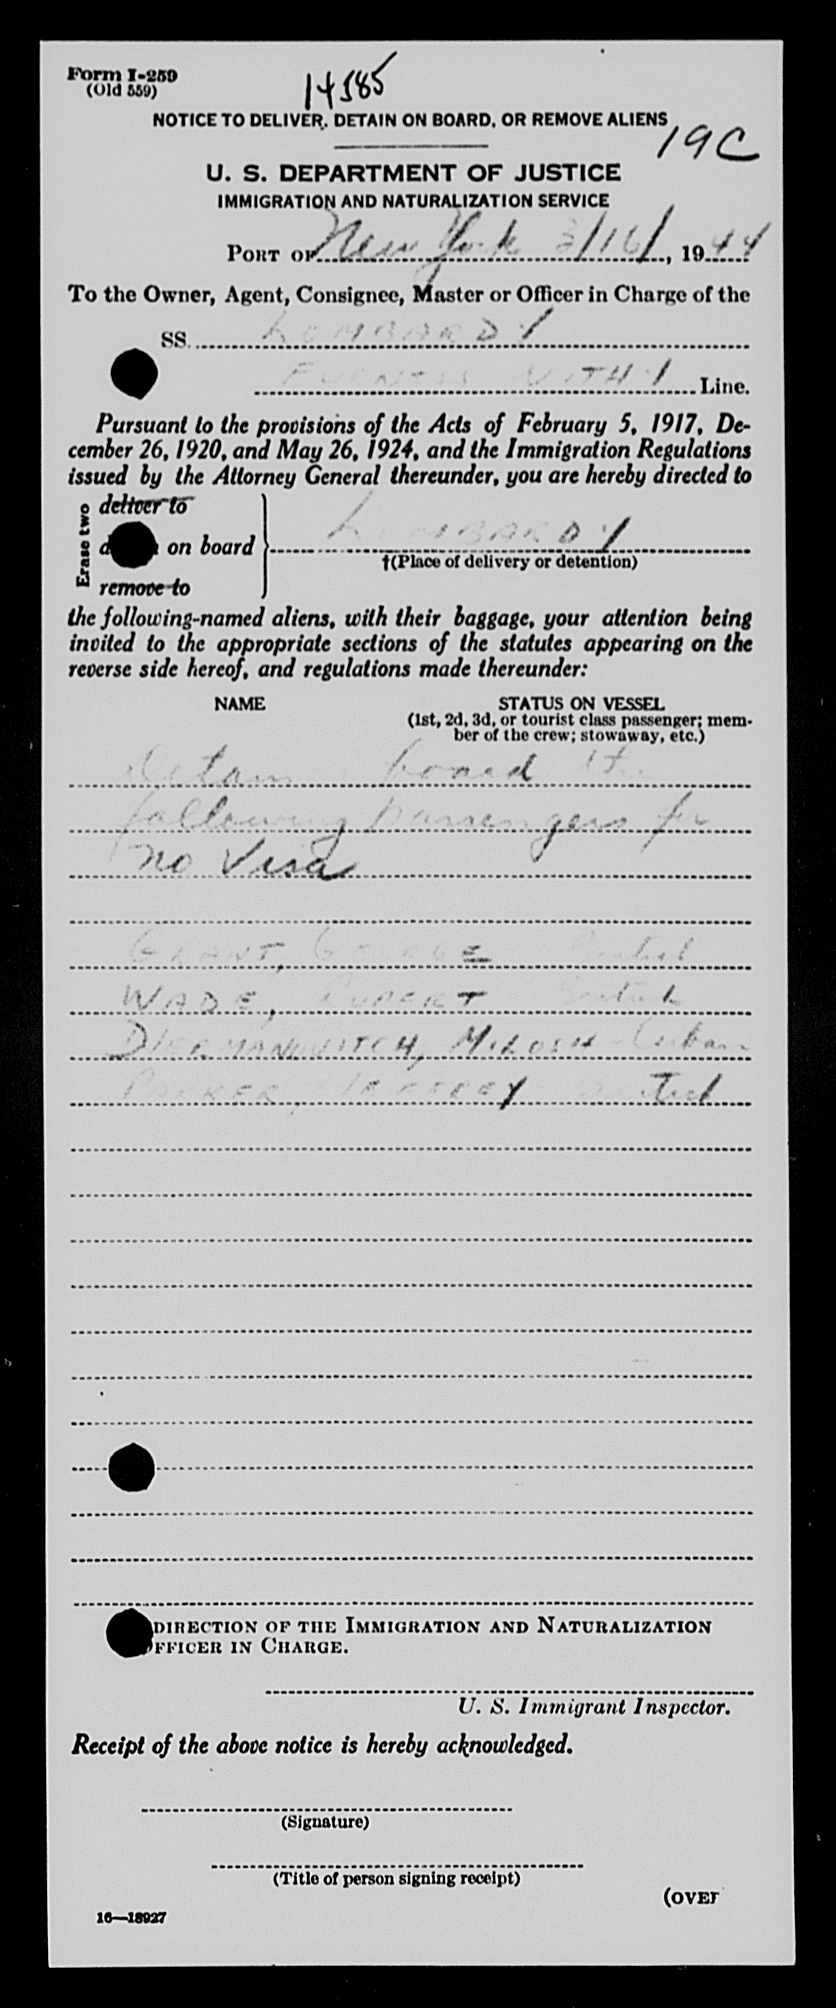 Form I-259
(Old 559)
14585
NOTICE TO DELIVER, DETAIN ON BOARD, OR REMOVE ALIENS
19C
U. S. DEPARTMENT OF JUSTICE
IMMIGRATION AND NATURALIZATION SERVICE
PORT OF New York 3/16/, 1944
To the Owner, Agent, Consignee, Master or Officer in Charge of the
SS. LOMBARDY
Line.
Pursuant to the provisions of the Acts of February 5, 1917, De-
cember 26, 1920, and May 26, 1924, and the Immigration Regulations
issued by the Attorney General thereunder, you are hereby directed to
Erase two
deliver to
on board LOMBARDY
†(Place of delivery or detention)
remove to
the following-named aliens, with their baggage, your attention being
invited to the appropriate sections of the statutes appearing on the
reverse side hereof, and regulations made thereunder:
NAME STATUS ON VESSEL
(1st, 2d, 3d, or tourist class passenger; mem-
ber of the crew; stowaway, etc.)
detain board the
following passengers for
no Visa
GRANT, GEORGE British
WADE, RUPERT British
MILOSH Cuban
PARKER, JEFFREY British
DIRECTION OF THE IMMIGRATION AND NATURALIZATION
OFFICER IN CHARGE.
U. S. Immigrant Inspector.
Receipt of the above notice is hereby acknowledged.
(Signature)
(Title of person signing receipt)
(OVER
16—18927